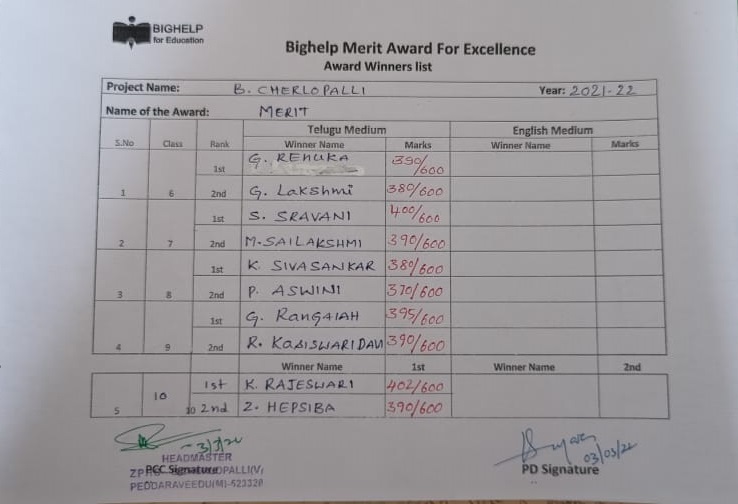 BIGHELP
for Education
Bighelp Merit Award For Excellence
Award Winners list
Project Name: B. CHERLOPALLI Year: 2021-22
Name of the Award: MERIT
Telugu Medium English Medium
S.No Class Rank Winner Name Marks Winner Name Marks
1st G. RENUKA 390/600
1 6 2nd G. Lakshmi 380/600
1st S. SRAVANI 400/600
2 7 2nd M. SAILAKSHMI 390/600
1st K. SIVASANKAR 380/600
3 8 2nd P. ASWINI 370/600
1st G. RANGAIAH 395/600
4 9 2nd R. KASISWARIDAVI 390/600
Winner Name 1st Winner Name 2nd
10 1st K. RAJESWARI 402/600
5 10 2nd Z. HEPSIBA 390/600
HEADMASTER
PGC Signature
PEDDARAVEEDU(M)-523320
03/03/22
PD Signature